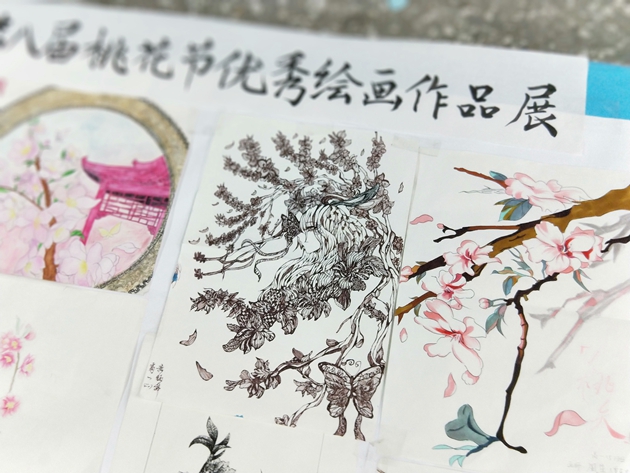 八届桃花节优秀绘画作品展